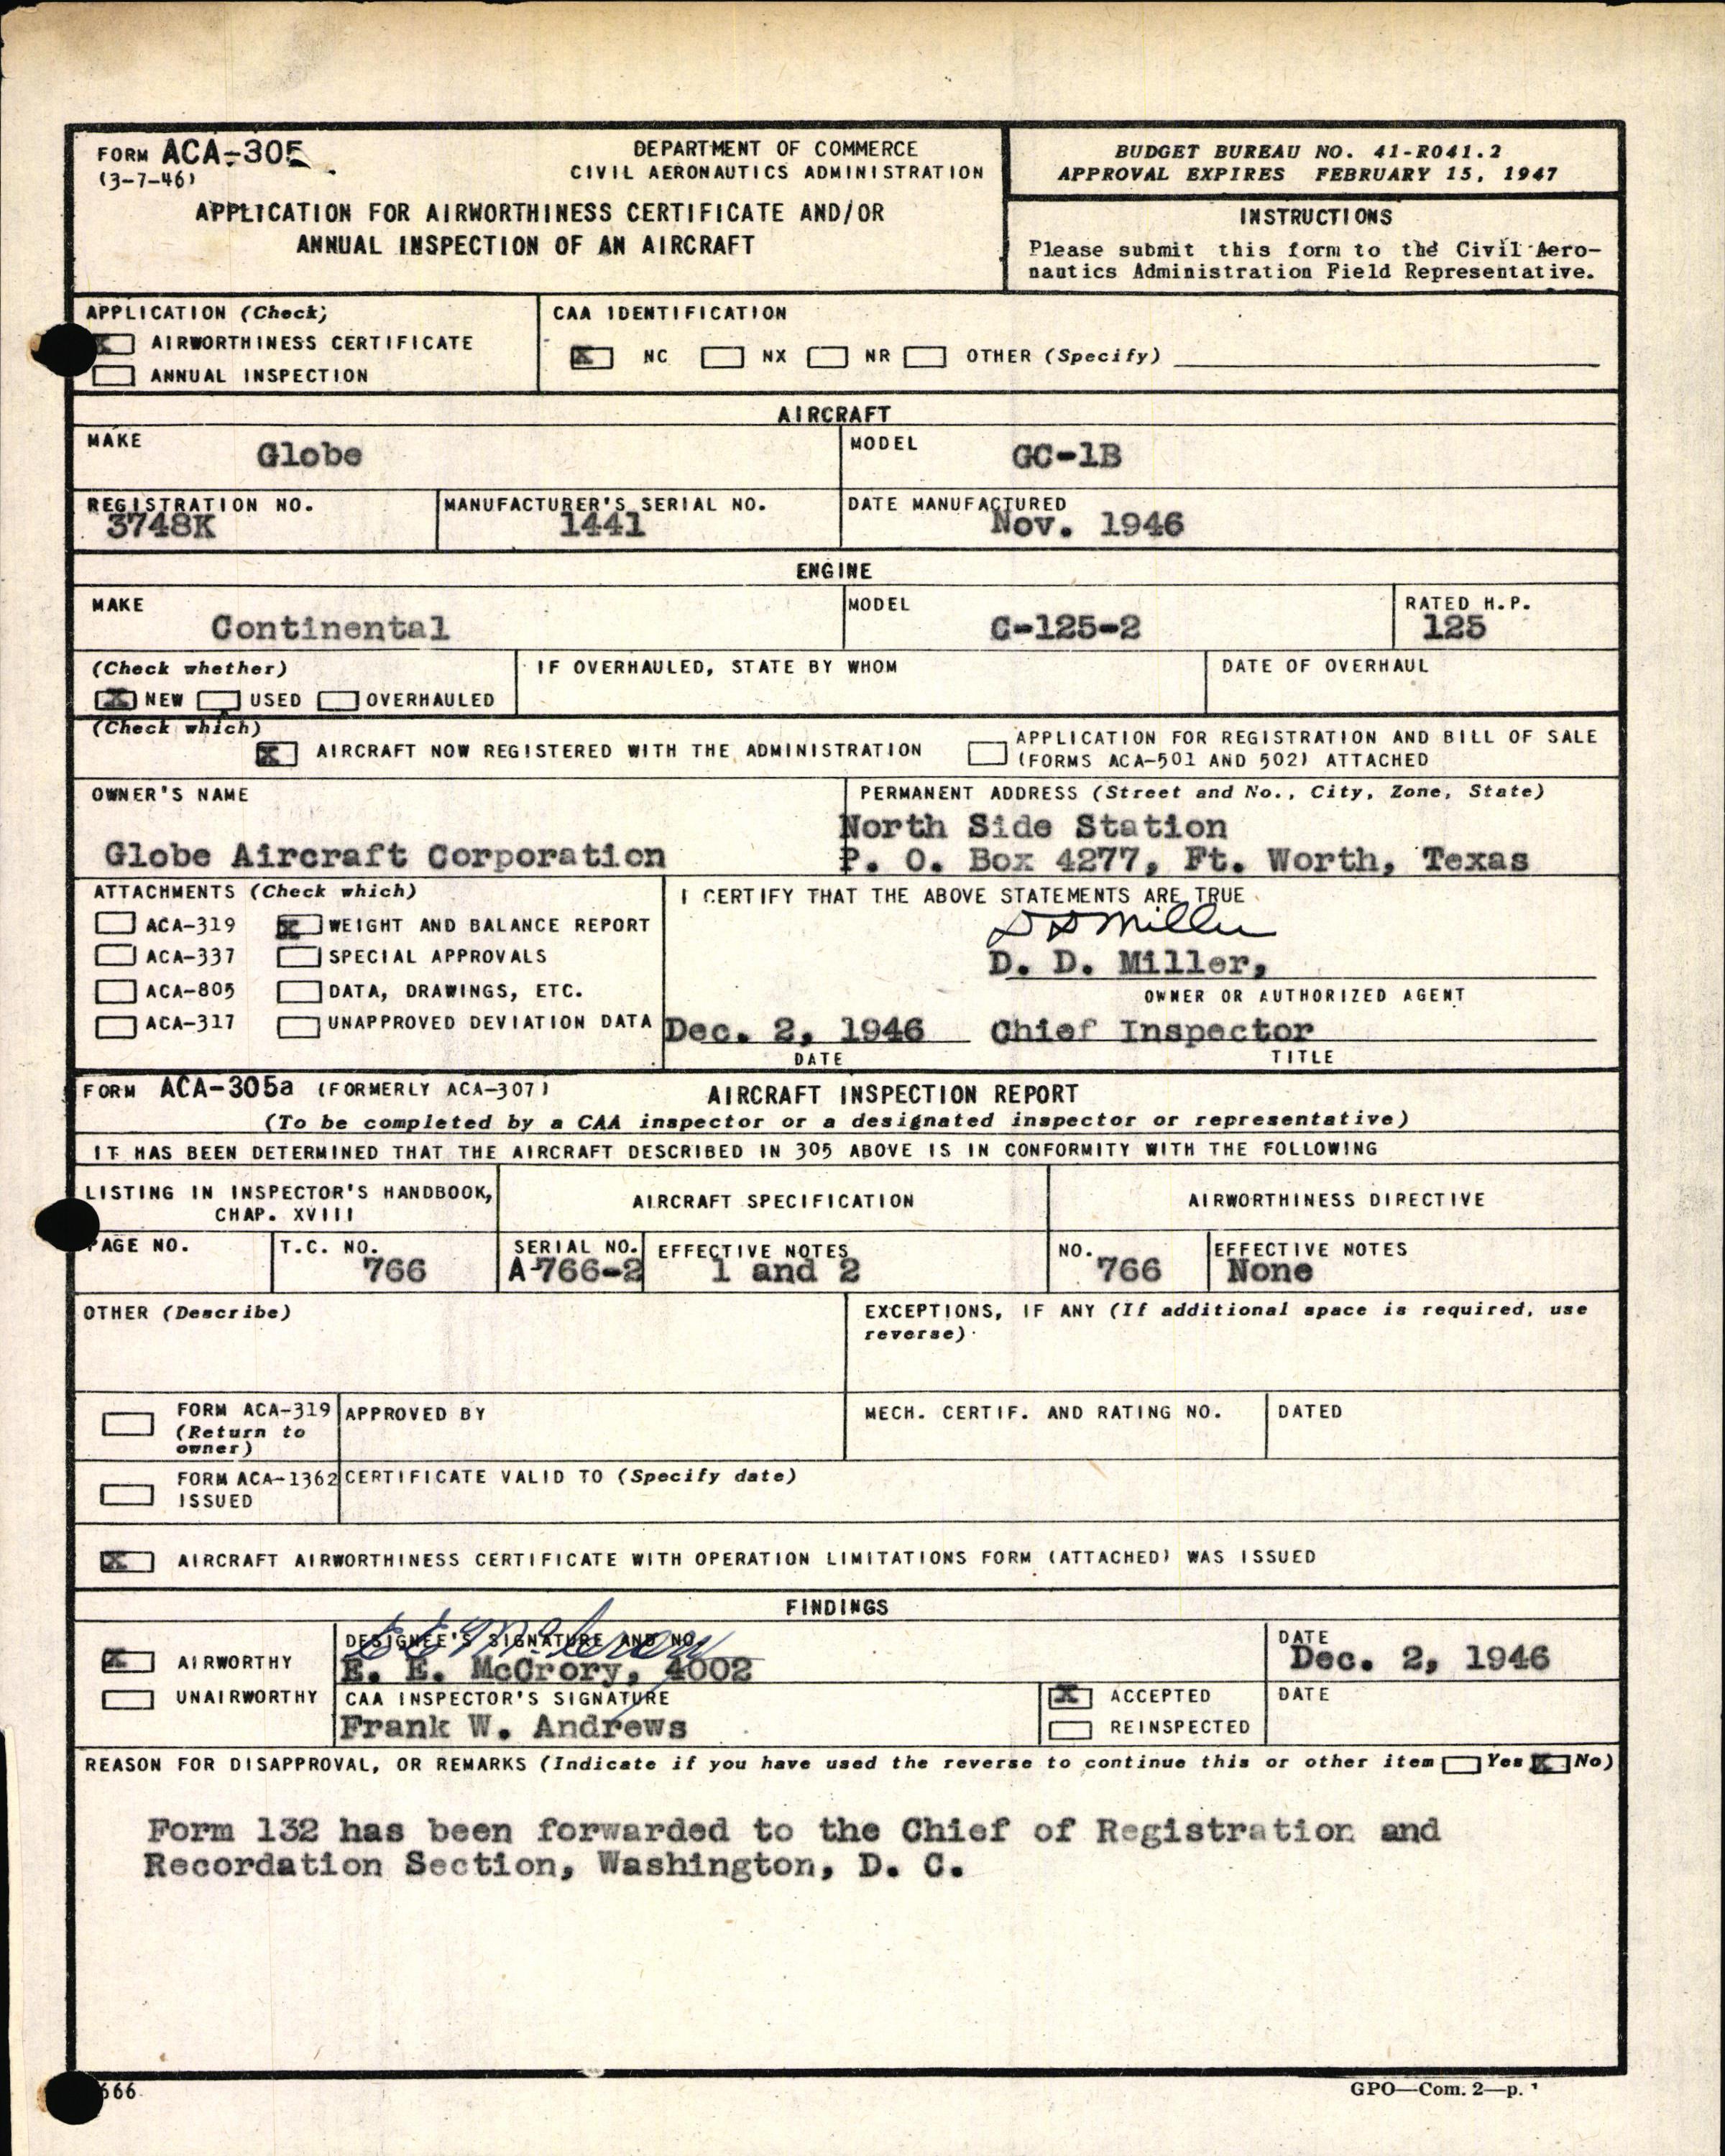 FORM ACA-305
(3-7-46)
DEPARTMENT OF COMMERCE
CIVIL AERONAUTICS ADMINISTRATION
APPLICATION FOR AIRWORTHINESS CERTIFICATE AND/OR
ANNUAL INSPECTION OF AN AIRCRAFT
BUDGET BUREAU NO. 41-R041.2
APPROVAL EXPIRES FEBRUARY 15, 1947
INSTRUCTIONS
Please submit this form to the Civil Aero-
nautics Administration Field Representative.
APPLICATION (Check)
X AIRWORTHINESS CERTIFICATE
ANNUAL INSPECTION
CAA IDENTIFICATION
X NC NX NR OTHER (Specify)
AIRCRAFT
MAKE
Globe
MODEL
GC-1B
REGISTRATION NO.
3748K
MANUFACTURER'S SERIAL NO.
1441
DATE MANUFACTURED
Nov. 1946
ENGINE
MAKE
Continental
MODEL
C-125-2
RATED H.P.
125
(Check whether)
X NEW USED OVERHAULED
IF OVERHAULED, STATE BY WHOM
DATE OF OVERHAUL
(Check which)
X AIRCRAFT NOW REGISTERED WITH THE ADMINISTRATION
APPLICATION FOR REGISTRATION AND BILL OF SALE
(FORMS ACA-501 AND 502) ATTACHED
OWNER'S NAME
Globe Aircraft Corporation
PERMANENT ADDRESS (Street and No., City, Zone, State)
North Side Station
P. O. Box 4277, Ft. Worth, Texas
ATTACHMENTS (Check which)
ACA-319 X WEIGHT AND BALANCE REPORT
ACA-337 SPECIAL APPROVALS
ACA-805 DATA, DRAWINGS, ETC.
ACA-317 UNAPPROVED DEVIATION DATA
I CERTIFY THAT THE ABOVE STATEMENTS ARE TRUE
D D Miller
D. D. Miller,
OWNER OR AUTHORIZED AGENT
Dec. 2, 1946 Chief Inspector
DATE TITLE
FORM ACA-305a (FORMERLY ACA-307) AIRCRAFT INSPECTION REPORT
(To be completed by a CAA inspector or a designated inspector or representative)
IT HAS BEEN DETERMINED THAT THE AIRCRAFT DESCRIBED IN 305 ABOVE IS IN CONFORMITY WITH THE FOLLOWING
LISTING IN INSPECTOR'S HANDBOOK,
CHAP. XVIII
AIRCRAFT SPECIFICATION
AIRWORTHINESS DIRECTIVE
PAGE NO.
T.C. NO.
766
SERIAL NO.
A-766-2
EFFECTIVE NOTES
1 and 2
NO.
766
EFFECTIVE NOTES
None
OTHER (Describe)
EXCEPTIONS, IF ANY (If additional space is required, use
reverse)
FORM ACA-319
(Return to
owner)
APPROVED BY
MECH. CERTIF. AND RATING NO.
DATED
FORM ACA-1362
ISSUED
CERTIFICATE VALID TO (Specify date)
X AIRCRAFT AIRWORTHINESS CERTIFICATE WITH OPERATION LIMITATIONS FORM (ATTACHED) WAS ISSUED
FINDINGS
X AIRWORTHY
UNAIRWORTHY
DESIGNEE'S SIGNATURE AND NO.
E E McCrory
E. E. McCrory, 4002
DATE
Dec. 2, 1946
CAA INSPECTOR'S SIGNATURE
Frank W. Andrews
X ACCEPTED
REINSPECTED
DATE
REASON FOR DISAPPROVAL, OR REMARKS (Indicate if you have used the reverse to continue this or other item Yes X No)
Form 132 has been forwarded to the Chief of Registration and
Recordation Section, Washington, D. C.
666
GPO—Com. 2—p. 1